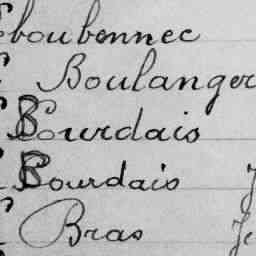 eboubennec
Boulanger
Bourdais
Bourdais J
Bras Je